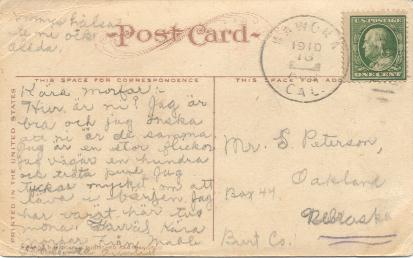 mammas hälsar
Post Card
WAWONA
1910
CAL.
U.S. POSTAGE
ONE CENT
THIS SPACE FOR CORRESPONDENCE
THIS SPACE FOR
PRINTED IN THE UNITED STATES
Kära morfar:-
Hur är ni? Jag är
bra och jag önska
att ni är de samma
Jag är en stor flicka
Jag väger en hundra
och pund. Jag
tyckar mycket om att
i bergen. Jag
har varit här två
Kära
Mr. S. Peterson,
Oakland
Box 44.
Nebraska
Burt Co.